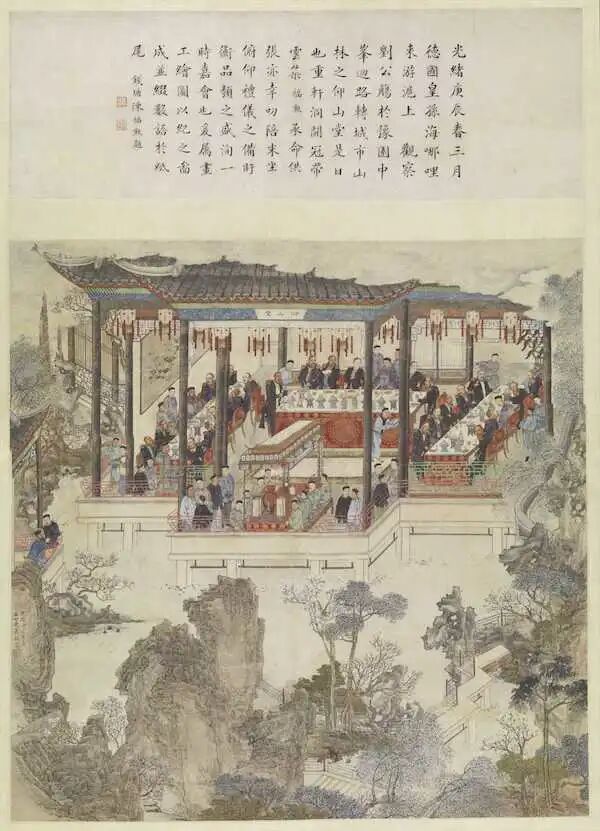 光緒庚辰春三月
德國皇孫海哪哩
來游滬上 觀察
劉公觴於豫園中
峯迴路轉城市山
林之仰山堂是日
也重軒洞開冠帶
雲蒸福勳承命供
張亦幸叨陪末坐
俯仰禮儀之備盱
衡品類之盛洵一
時嘉會也爰屬畫
工繪圖以紀之啚
成並綴數語於紙
尾 錢塘陳福勳題
仰山堂